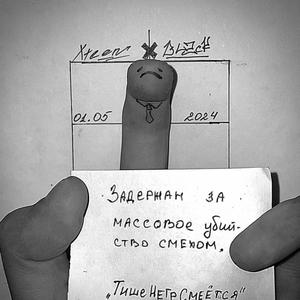 01.05 2024
ЗАДЕРЖАН ЗА
массовое убий-
ство смехом.
„Тише НЕГР Смеётся“